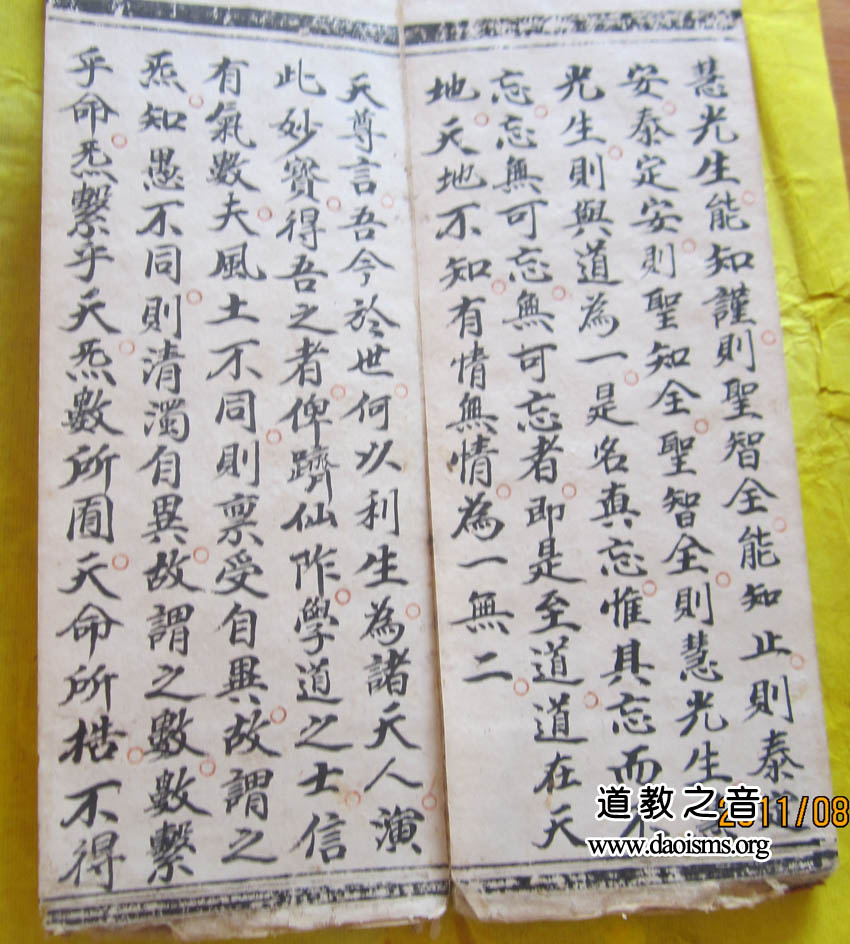 慧光生能知謹則聖智全能知止則泰
安泰定安則聖知全聖智全則慧光生
光生則與道為一是名真忘惟其忘而不
忘忘無可忘無可忘者即是至道道在天
地天地不知有情無情為一無二
天尊言吾今於世何以利生為諸天人演
此妙寶得吾之者俾躋仙阼學道之士信
有氣數夫風土不同則禀受自異故謂之
炁知愚不同則清濁自異故謂之數數繫
乎命炁繫乎天炁數所囿天命所梏不得
道教之音
2011/08
www.daoisms.org